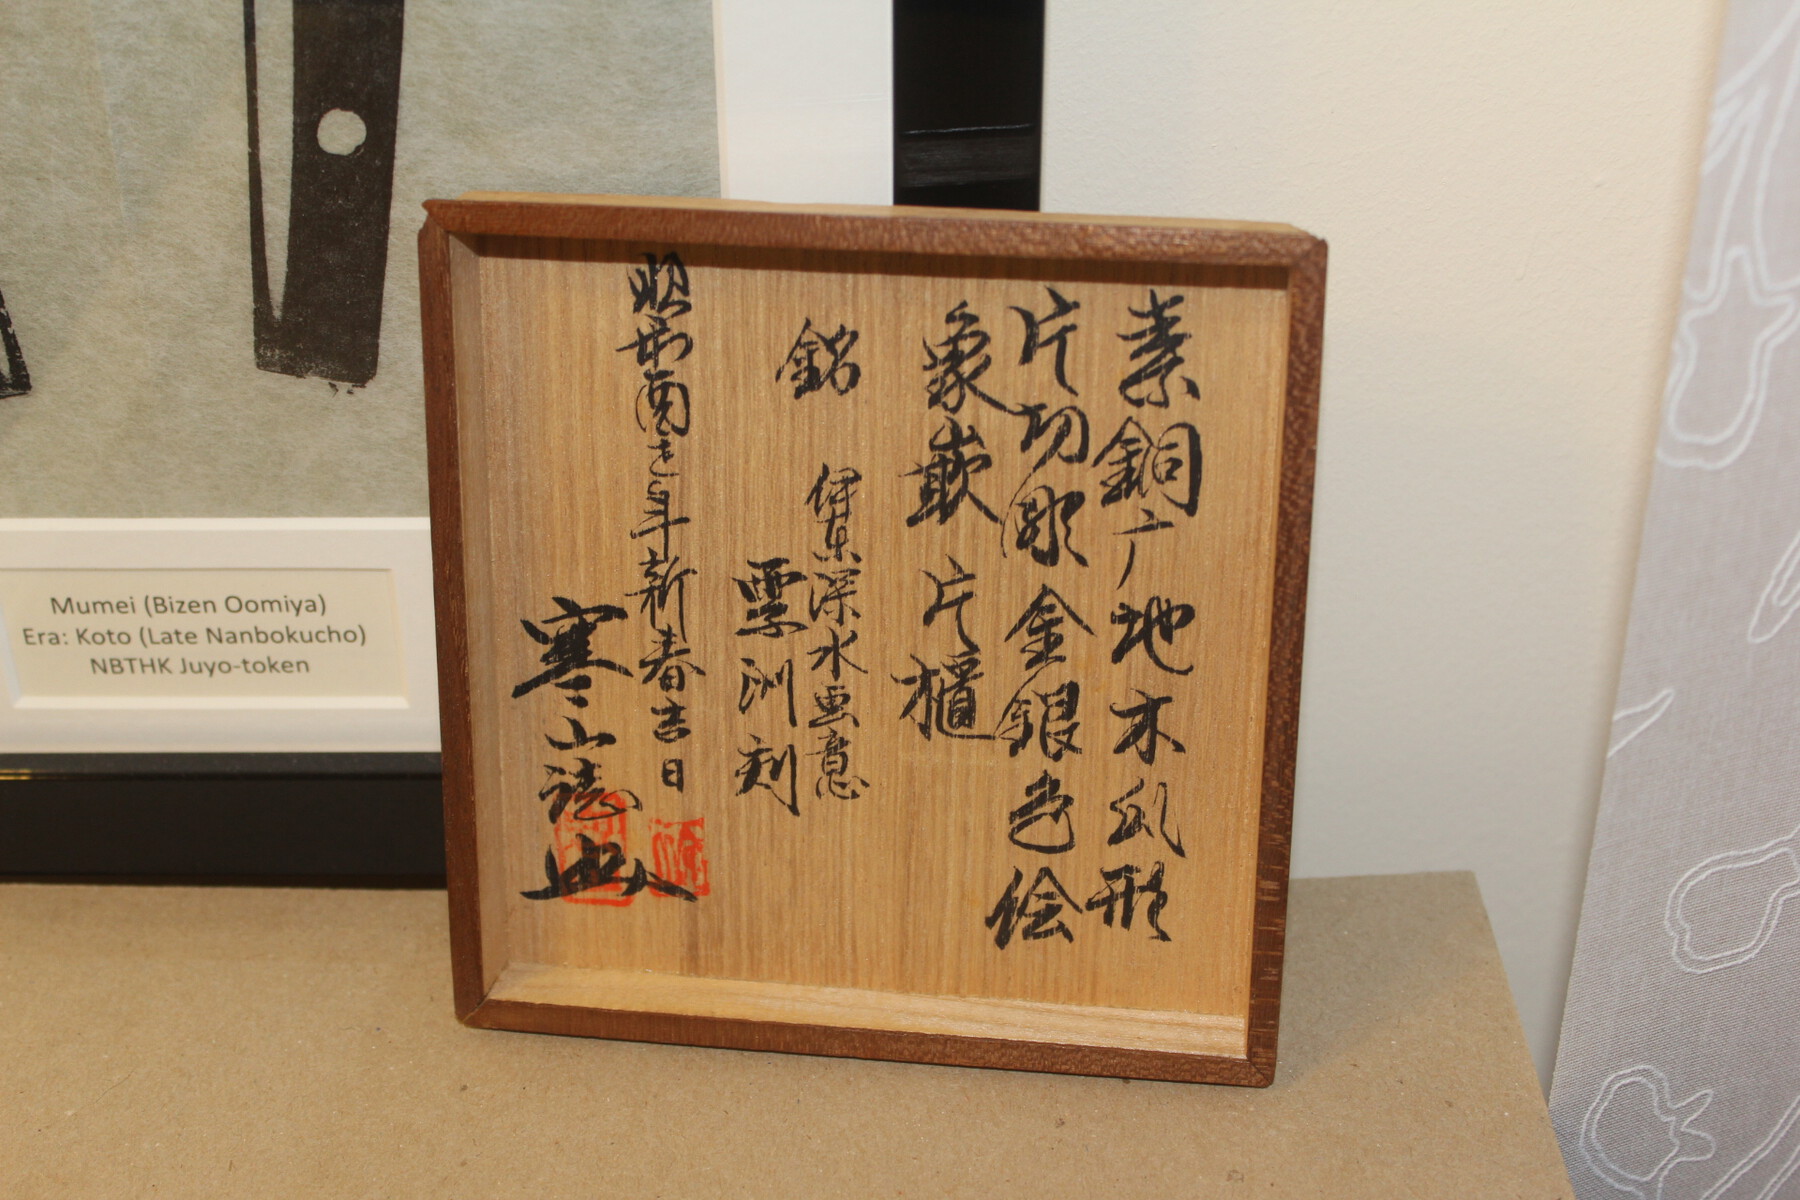 素銅广地木瓜形
片切彫金銀色絵
象嵌 片櫃
銘 伊東深水画意
票洲刻
昭和酉之年新春吉日
寒山誌
Mumei (Bizen Oomiya)
Era: Koto (Late Nanbokucho)
NBTHK Juyo-token